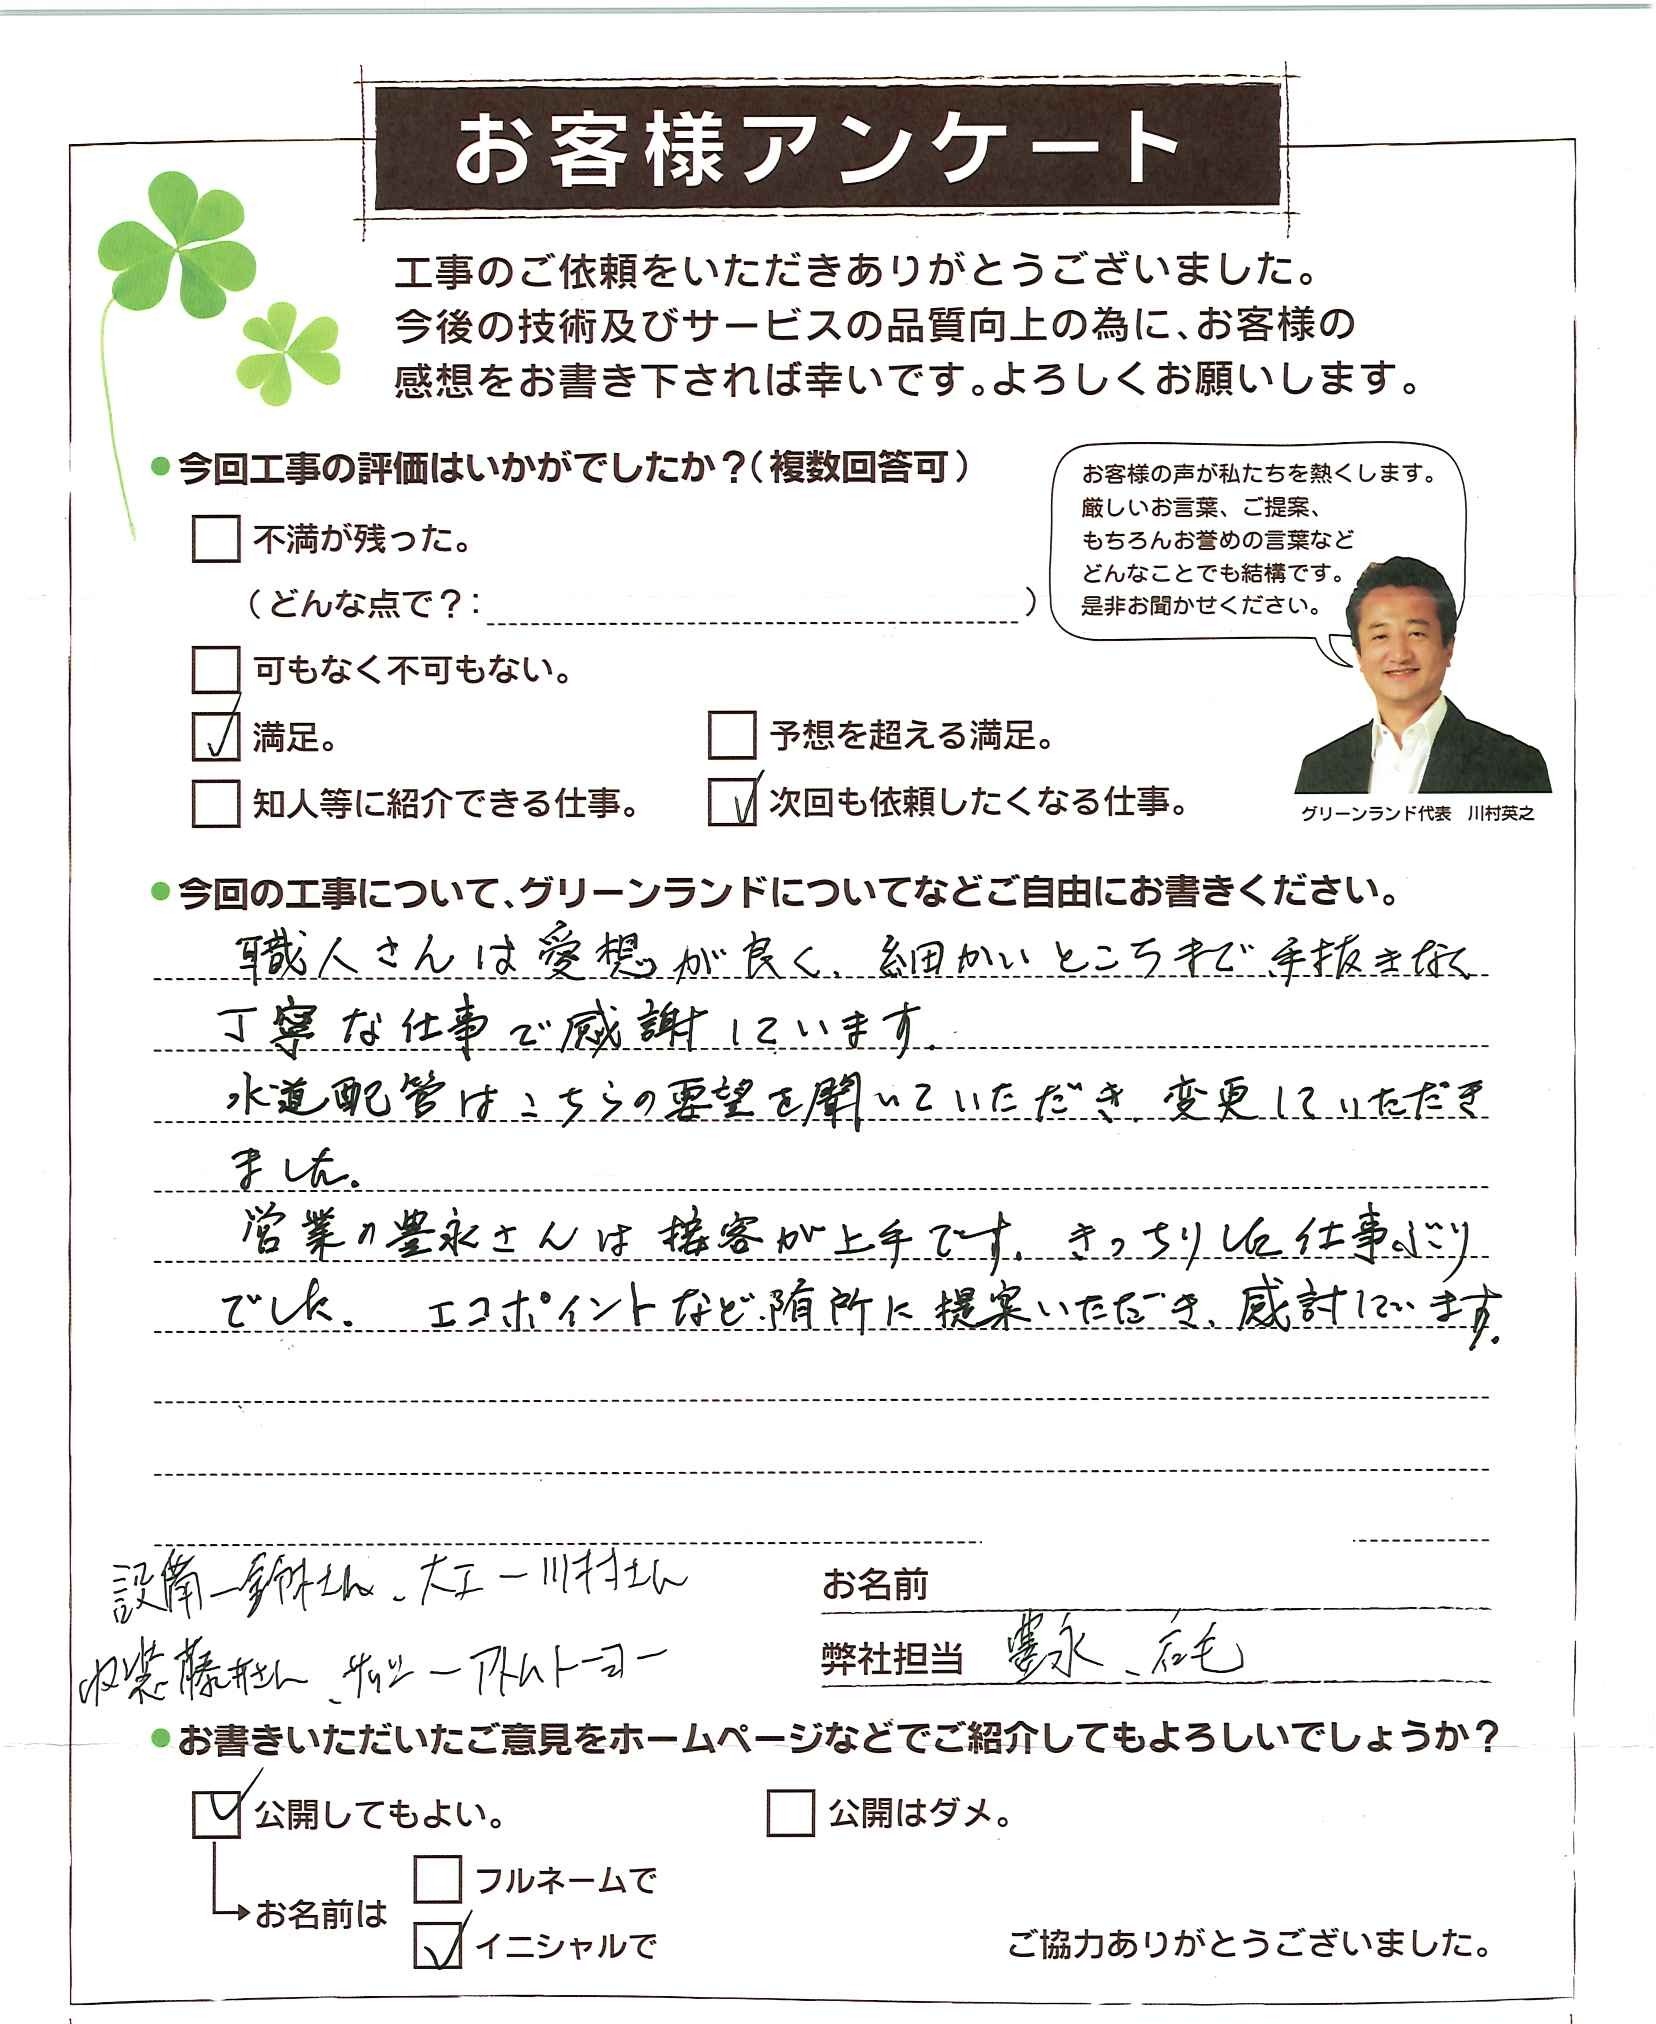 お客様アンケート
工事のご依頼をいただきありがとうございました。
今後の技術及びサービスの品質向上の為に、お客様の
感想をお書き下されば幸いです。よろしくお願いします。
●今回工事の評価はいかがでしたか？（複数回答可）
不満が残った。
（どんな点で？：　　　　　）
可もなく不可もない。
満足。
予想を超える満足。
知人等に紹介できる仕事。
次回も依頼したくなる仕事。
お客様の声が私たちを熱くします。
厳しいお言葉、ご提案、
もちろんお誉めの言葉など
どんなことでも結構です。
是非お聞かせください。
グリーンランド代表　川村英之
●今回の工事について、グリーンランドについてなどご自由にお書きください。
職人さんは愛想が良く、細かいところまで手抜きなく
丁寧な仕事で感謝しています。
水道配管はこちらの要望を聞いていただき、変更していただき
ました。
営業の豊永さんは接客が上手です。きっちりした仕事ぶり
でした。　エコポイントなど随所に提案いただき、感謝しています。
設備ー さん、大工ー川村さん
内装 藤井さん、サッシーアトムトーヨー
お名前
弊社担当　豊永、石毛
●お書きいただいたご意見をホームページなどでご紹介してもよろしいでしょうか？
公開してもよい。
公開はダメ。
お名前は
フルネームで
イニシャルで
ご協力ありがとうございました。